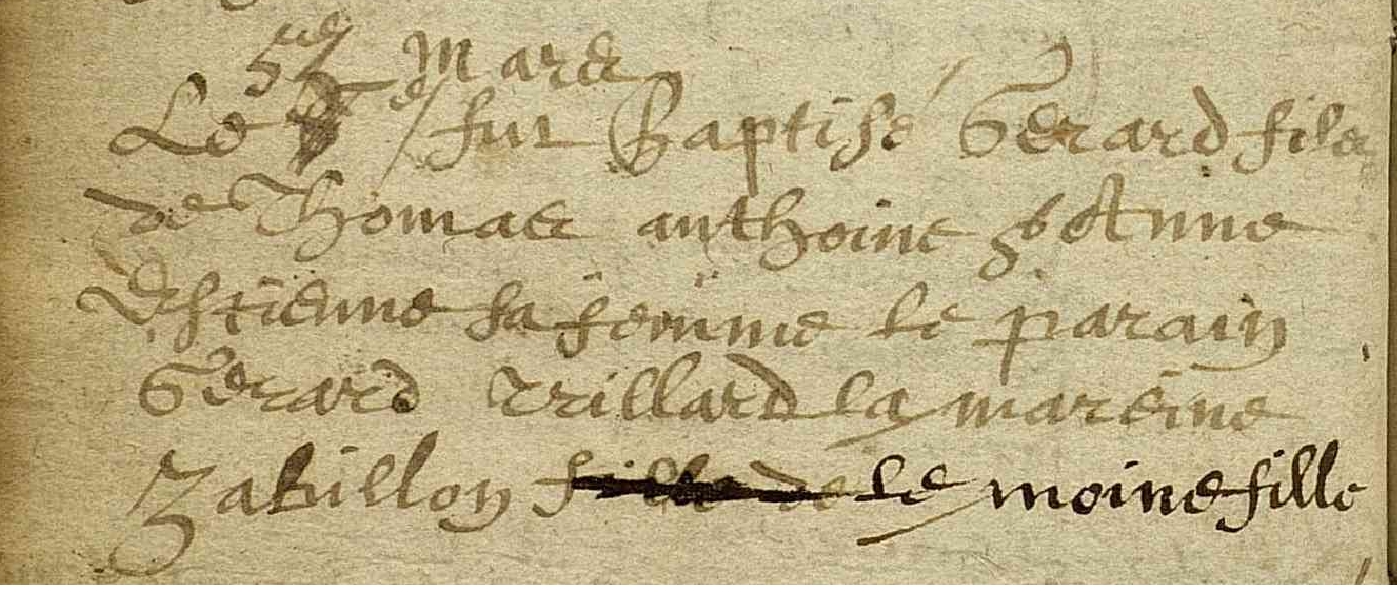 5me Mars
Le / fut Baptisé Gerard fils
de Thomas anthoine & Anne
Estienne sa femme le parain
Gerard Villard la mareine
Zabillon fille de le moine fille